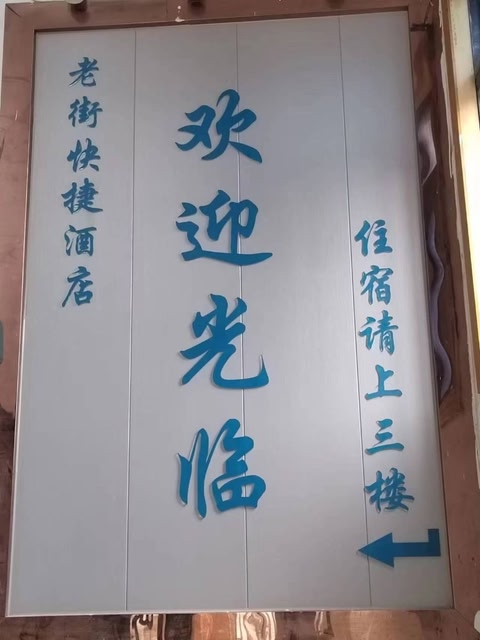 老街快捷酒店
欢迎光临
住宿请上三楼